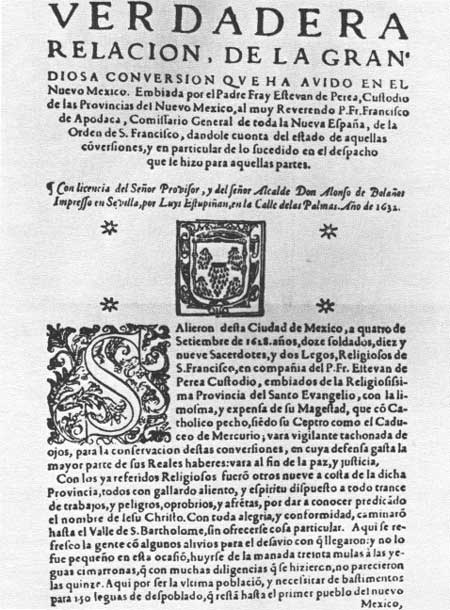 VERDADERA
RELACION, DE LA GRAN-
DIOSA CONVERSION QVE HA AVIDO EN EL
Nuevo Mexico. Embiada por el Padre Fray Estevan de Perea, Custodio
de las Provincias del Nuevo Mexico, al muy Reverendo P. Fr. Francisco
de Apodaca, Comissario General de toda la Nueva España, de la
Orden de S. Francisco, dandole cuenta del estado de aquellas
cõversiones, y en particular de lo sucedido en el despacho
que se hizo para aquellas partes.
¶ Con licencia del Señor Provisor, y del señor Alcalde Don Alonso de Bolaños
Impresso en Sevilla, por Luys Estupiñan, en la Calle de las Palmas. Año de 1632.
SAlieron desta Ciudad de Mexico, a quatro de
Setiembre de 1628. años, doze soldados, diez y
nueve Sacerdotes, y dos Legos, Religiosos de
S. Francisco, en compañia del P. Fr. Estevan de
Perea Custodio, embiados de la Religiosissi-
ma Provincia del Santo Evangelio, con la li-
mosna, y expensa de su Magestad, que cõ Ca-
tholico pecho, siẽdo su Ceptro como el Cadu-
ceo de Mercurio; vara vigilante tachonada de
ojos, para la conservacion destas conversiones, en cuya defensa gasta la
mayor parte de sus Reales haberes: vara al fin de la paz, y justicia,
Con los ya referidos Religiosos fuerõ otros nueve a costa de la dicha
Provincia, todos con gallardo aliento, y espiritu dispuesto a todo trance
de trabajos, y peligros, oprobrios, y afrẽtas, por dar a conocer predicãdo
el nombre de Iesu Christo. Con toda alegria, y conformidad, caminarõ
hasta el Valle de S. Bartholome, sin ofrecerse cosa particular. Aqui se re-
fresco la gente cõ algunos alivios para el desavio con q̃ llegaron: y no lo
fue pequeño en esta ocasiõ, huyrse de la manada treinta mulas a las ye-
guas cimarronas, q̃ con muchas diligencias q̃ se hizieron, no parecieron
las quinze. Aqui por ser la vltima poblaciõ, y necessitar de bastimentos
para 150 leguas de despoblado, q̃ restã hasta el primer pueblo del nuevo
Mexico,